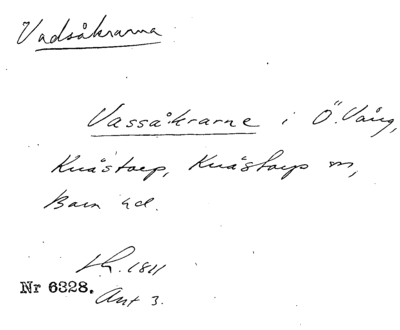 Vadsåkrarna
Vassåkrarne i Ö. Vång,
Knästorp, Knästorp sn,
Bara hd.
Lh. 1811
Nr 6328. Akt 3.